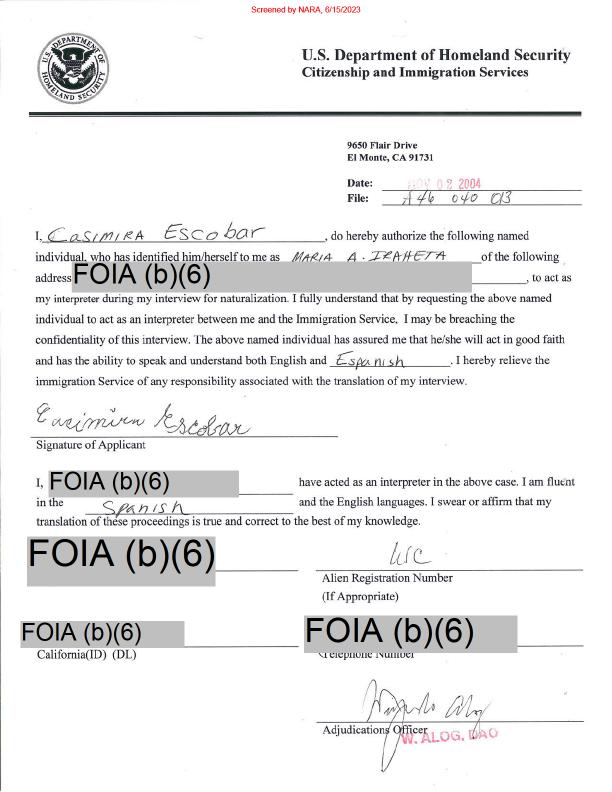 Screened by NARA, 6/15/2023
U.S. DEPARTMENT OF HOMELAND SECURITY
U.S. Department of Homeland Security
Citizenship and Immigration Services
9650 Flair Drive
El Monte, CA 91731
Date: NOV 02 2004
File: A46 040 013
I, Casimira Escobar, do hereby authorize the following named
individual, who has identified him/herself to me as MARIA A. IRAHETA of the following
address FOIA (b)(6), to act as
my interpreter during my interview for naturalization. I fully understand that by requesting the above named
individual to act as an interpreter between me and the Immigration Service, I may be breaching the
confidentiality of this interview. The above named individual has assured me that he/she will act in good faith
and has the ability to speak and understand both English and Espanish. I hereby relieve the
immigration Service of any responsibility associated with the translation of my interview.
Casimira Escobar
Signature of Applicant
I, FOIA (b)(6) have acted as an interpreter in the above case. I am fluent
in the Spanish and the English languages. I swear or affirm that my
translation of these proceedings is true and correct to the best of my knowledge.
FOIA (b)(6)
Alien Registration Number
(If Appropriate)
FOIA (b)(6) FOIA (b)(6)
California(ID) (DL) Telephone Number
Adjudications Officer
W. ALOG, DAO